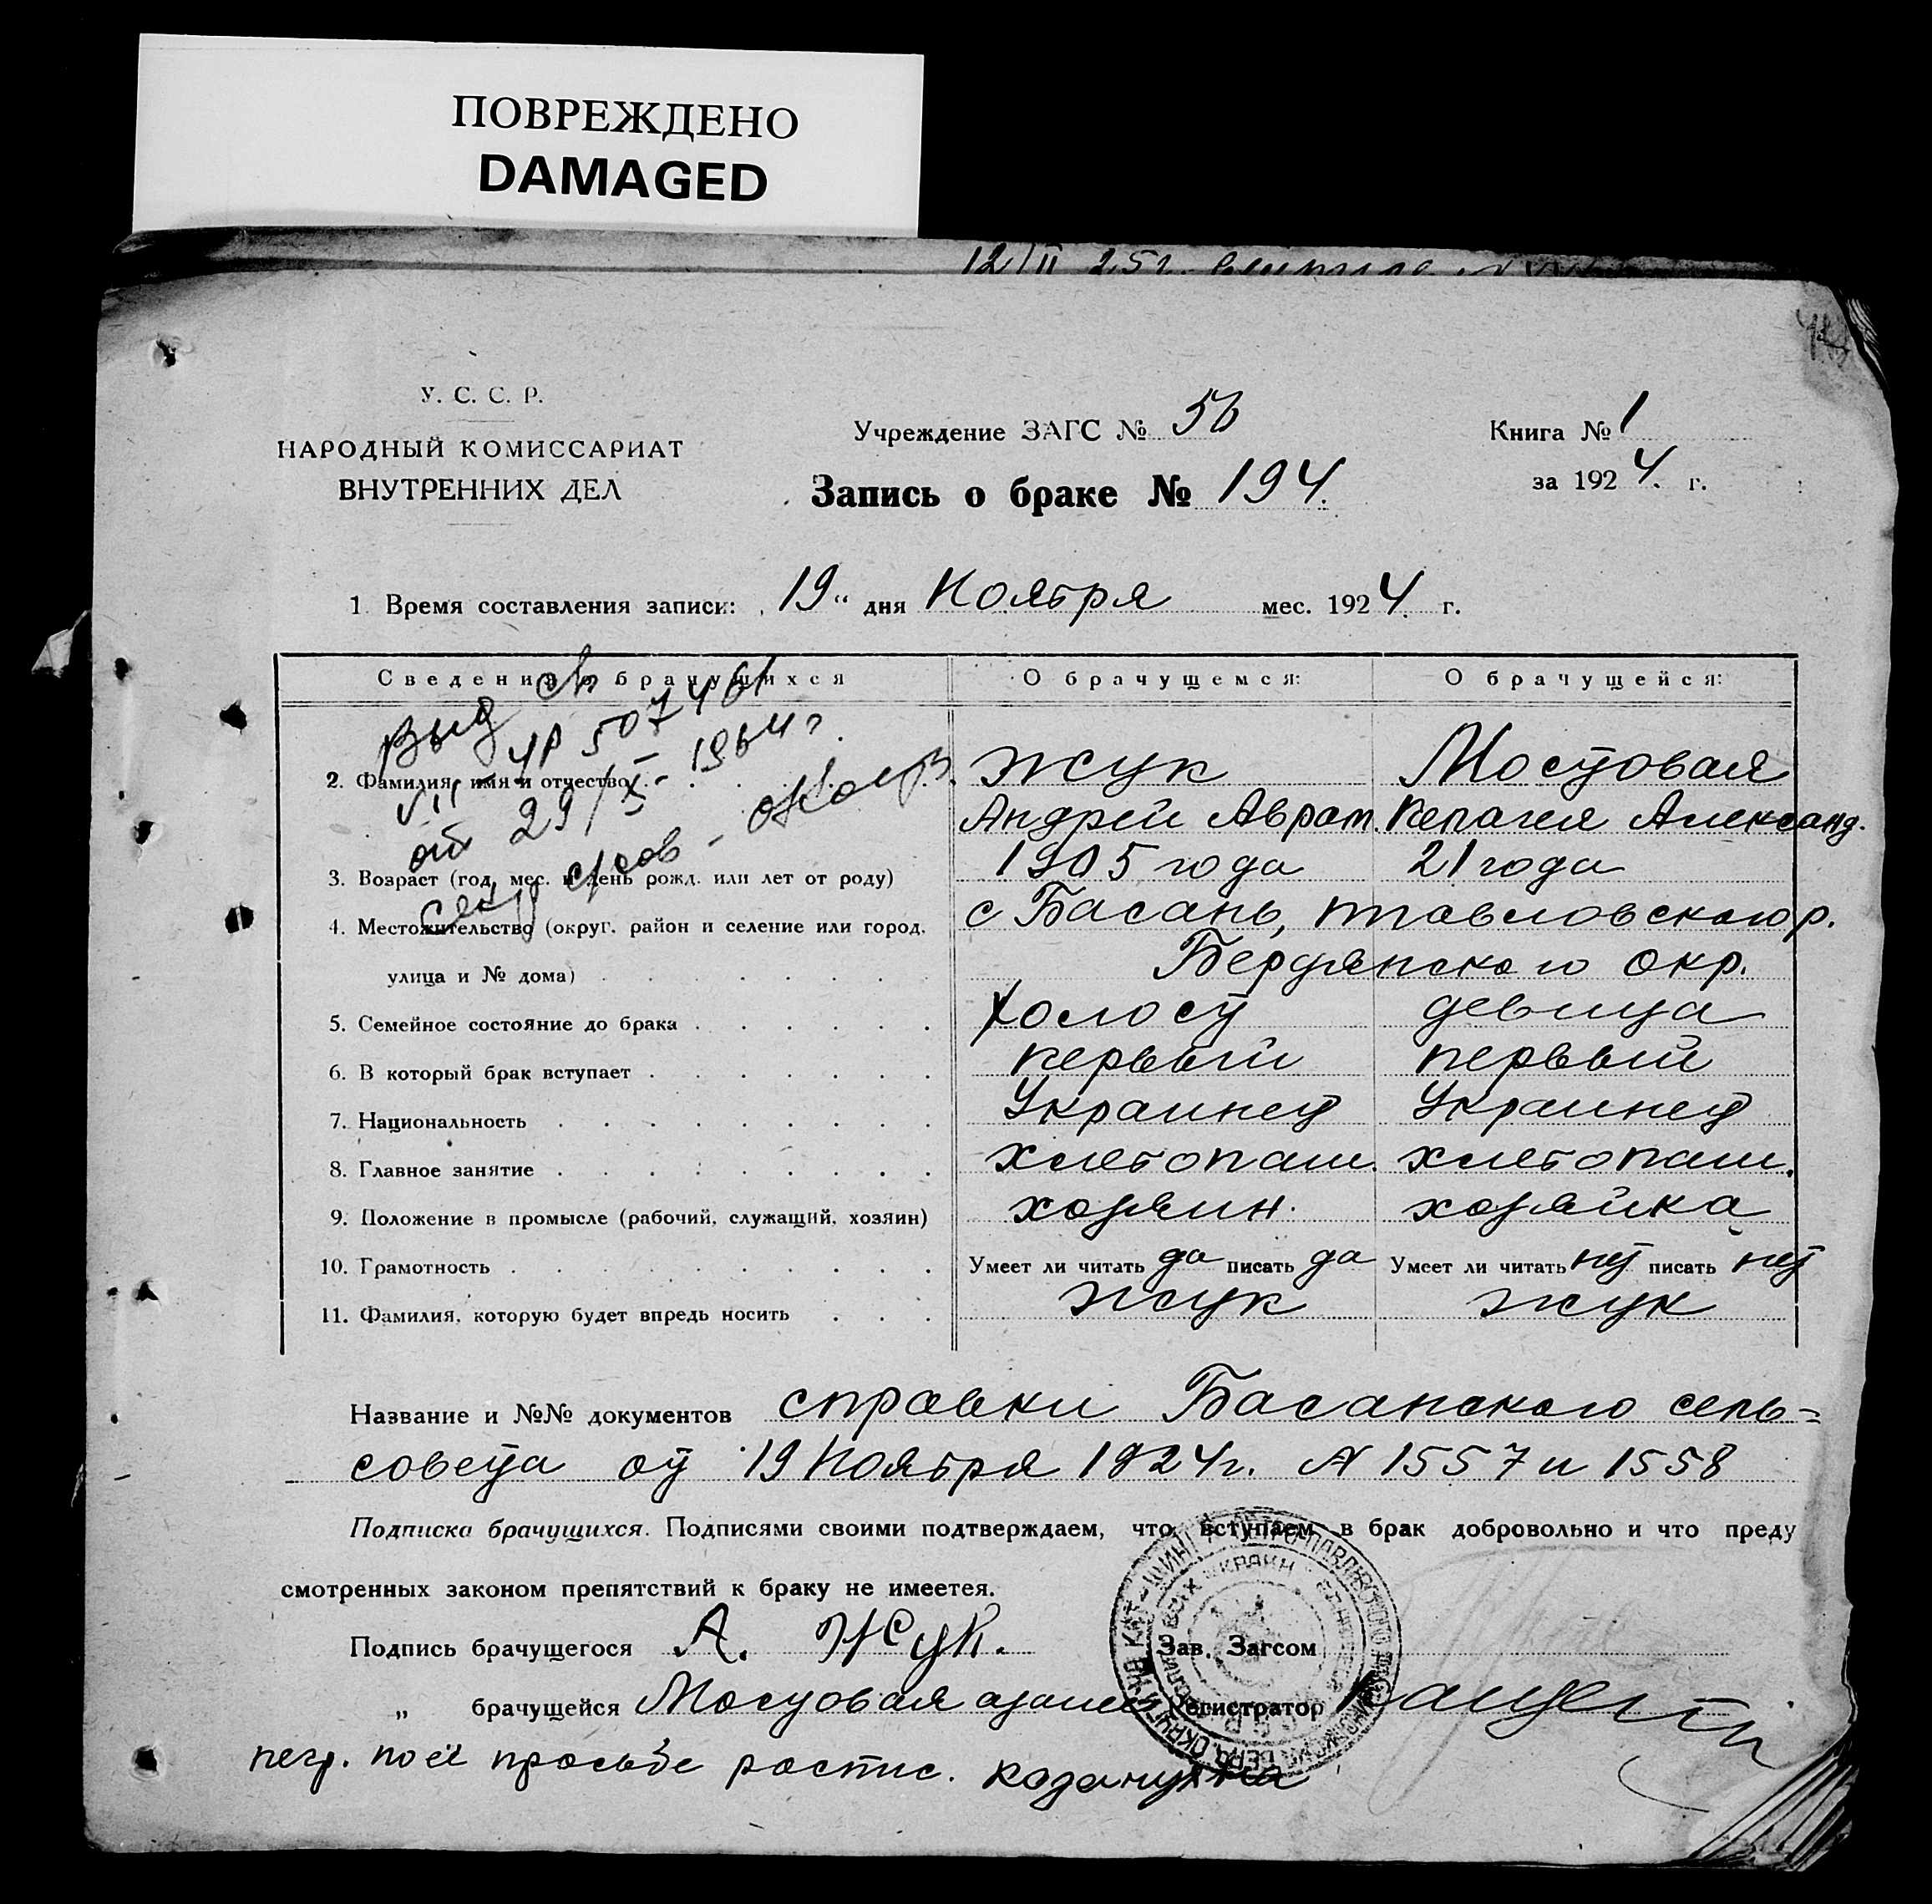 ПОВРЕЖДЕНО
DAMAGED
12/II 25г.
У. С. С. Р.
НАРОДНЫЙ КОМИССАРИАТ
ВНУТРЕННИХ ДЕЛ
Учреждение ЗАГС № 56
Книга № 1
Запись о браке № 194.
за 1924. г.
1. Время составления записи: 19 " дня Ноября мес. 1924. г.
Сведения о брачущихся
О брачущемся:
О брачущейся:
Выд
УР 507461
от 29/X- 1964г.
2. Фамилия, имя и отчество
Жук
Мостовая
Андрей Аврам.
Пелагея Александ.
3. Возраст (год, мес. и день рожд. или лет от роду)
1905 года
21 года
4. Местожительство (округ, район и селение или город,
с Басань, Павловского р.
улица и № дома)
Бердянского окр.
5. Семейное состояние до брака
Холост
девица
6. В который брак вступает
первый
первый
7. Национальность
Украинец
Украинец
8. Главное занятие
хлебопаш.
хлебопаш.
9. Положение в промысле (рабочий, служащий, хозяин)
хозяин.
хозяйка
10. Грамотность
Умеет ли читать да писать да
Умеет ли читать нет писать нет
11. Фамилия, которую будет впредь носить
Жук
Жук
Название и №№ документов справки Басанского сель=
совета от 19 Ноября 1924г. № 1557 и 1558
Подписка брачущихся. Подписями своими подтверждаем, что вступаем в брак добровольно и что преду
смотренных законом препятствий к браку не имеется.
Подпись брачущегося А. Жук.
Зав. Загсом
" брачущейся Мостовая
Регистратор
негр. по её просьбе распис.